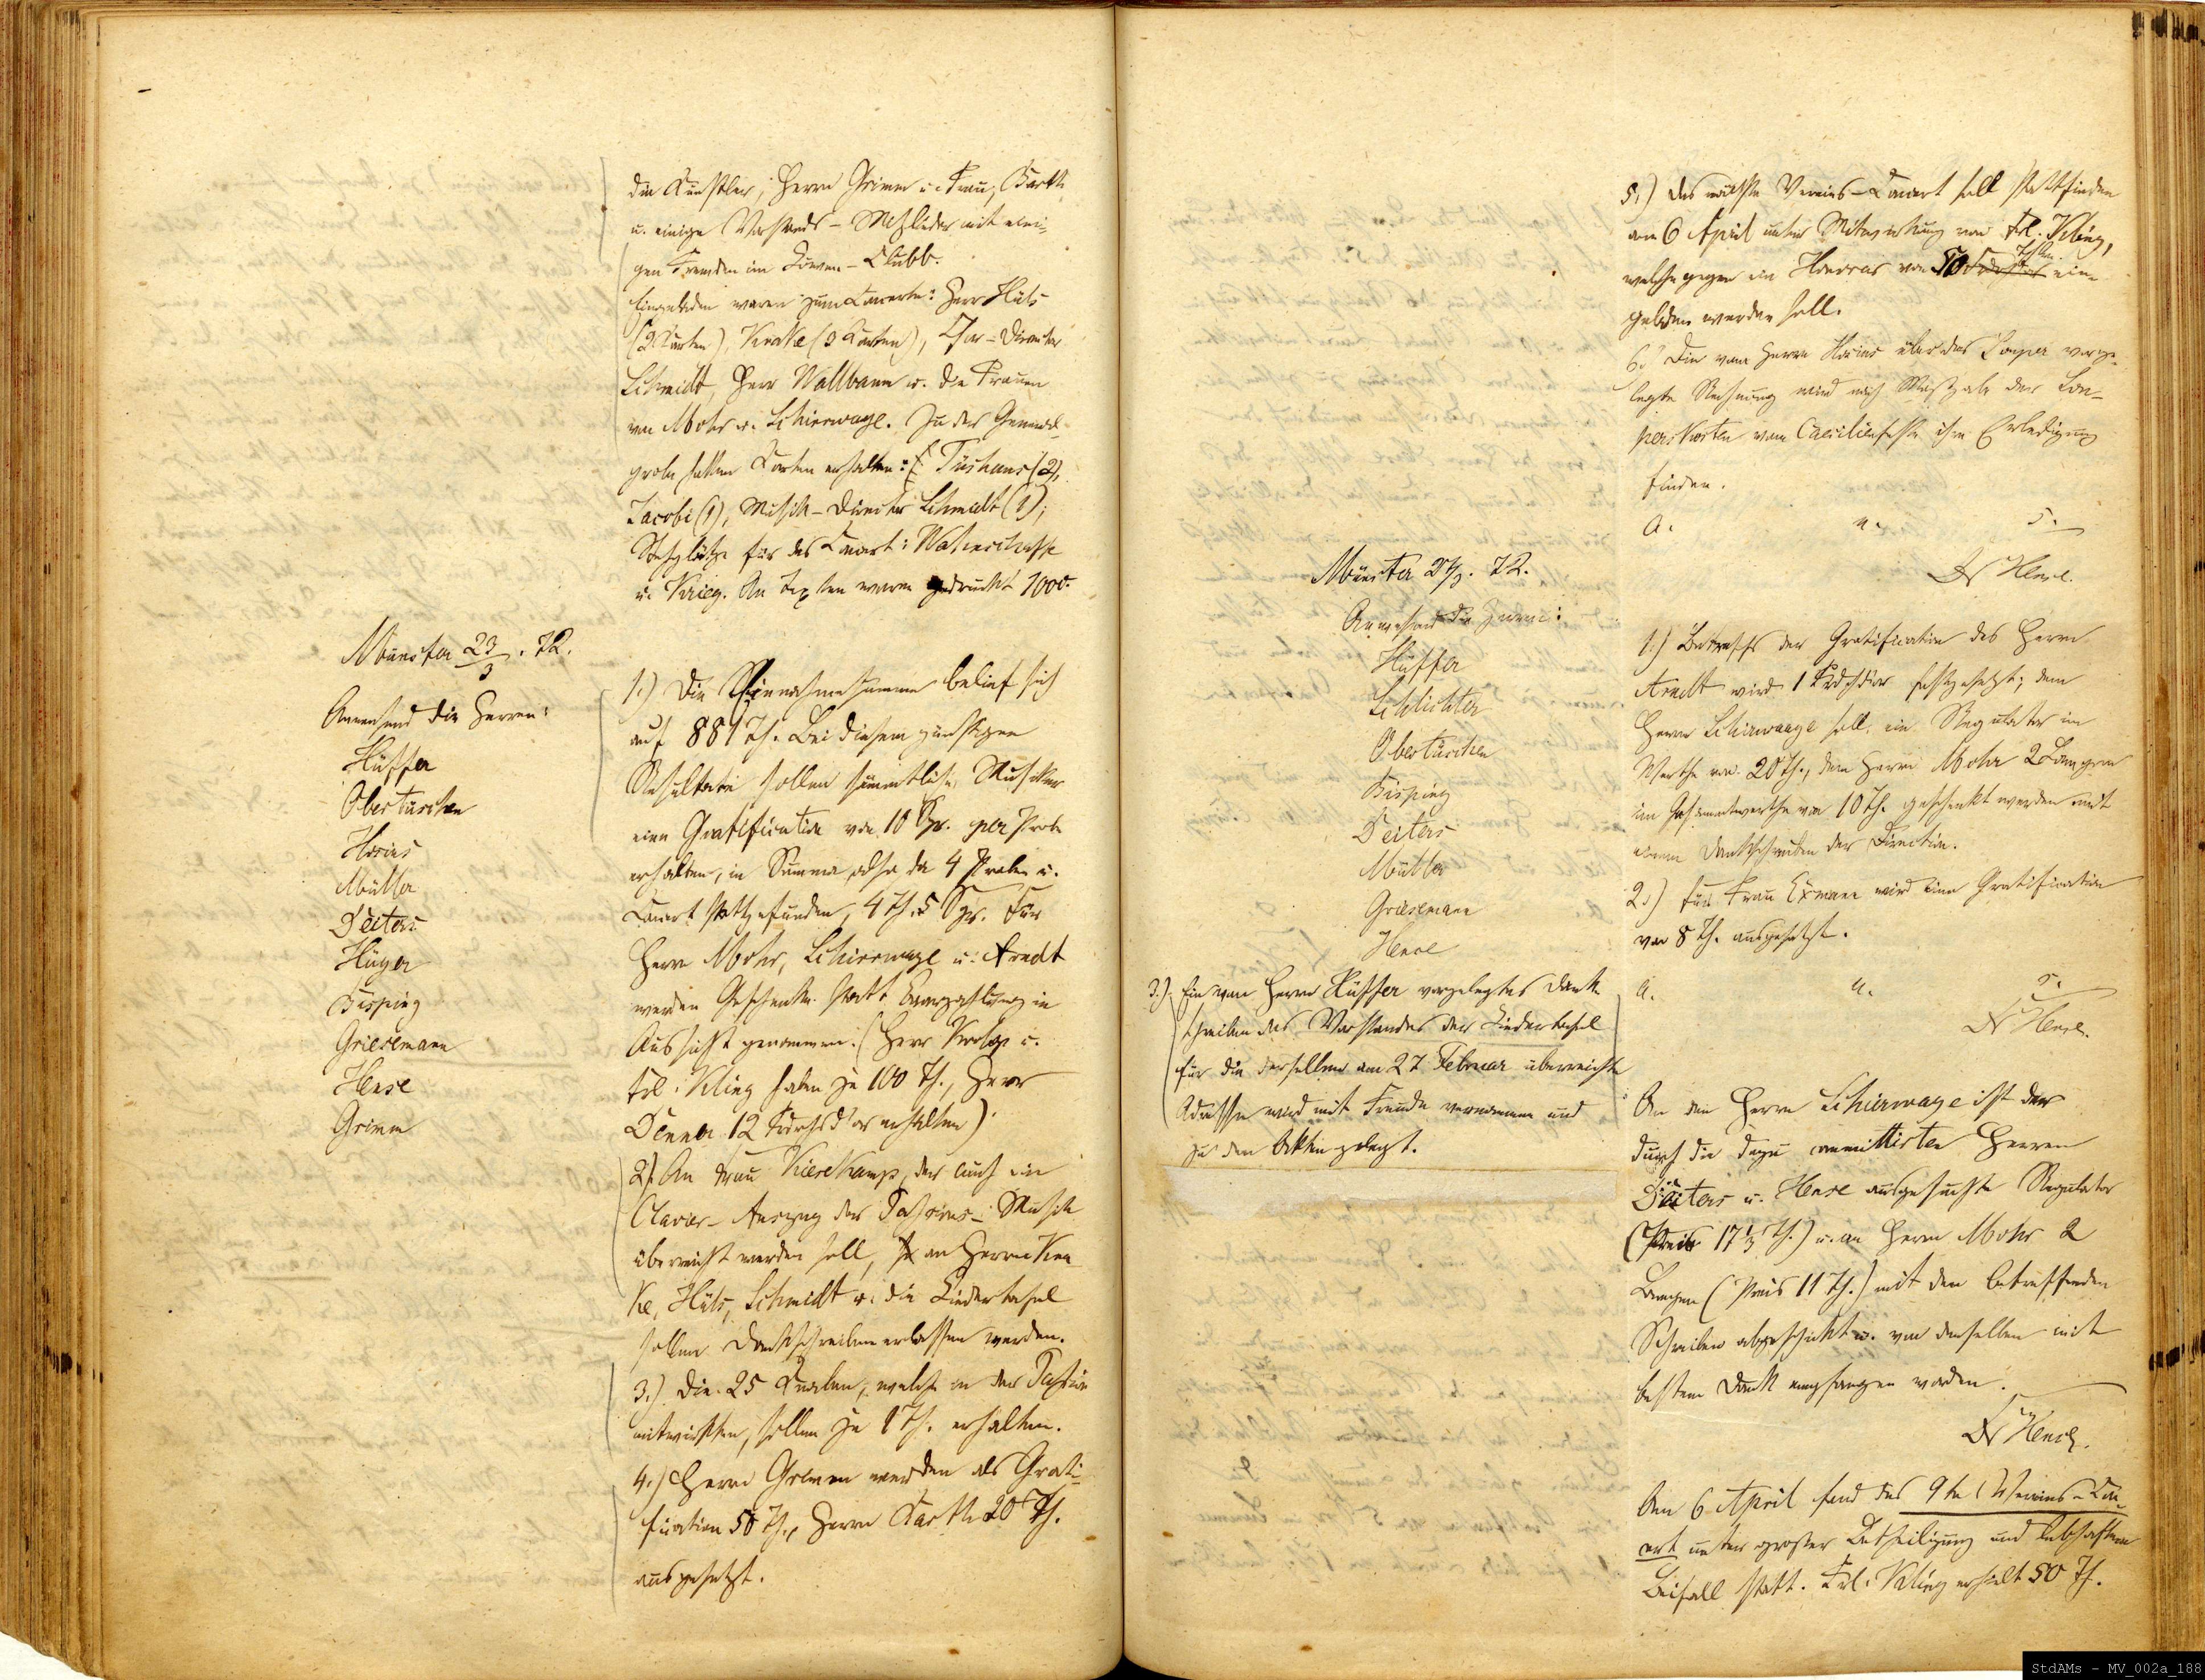 die Künstler, Herrn Grimm u. Frau, Barth
u. einige Vorstands-Mitglieder mit eini-
gen Fremden im Löwen-Clubb.
Eingeladen waren zum Concerte: Herr Hüls
(2 Karten), Krake (3 Karten), Chor-Director
Schmidt, Herr Wallbaum u. die Frauen
von Mohr u. Schierwage. Zu der General-
probe hatten Karten erhalten: Tüshaus (2),
Jacobi (1), Musik-Director Schmidt (1);
Stehplätze für das Concert:
u. Krieg. An Texten waren gedruckt 1000.
Münster 23/3. 72.
Anwesend die Herren:
Hüffer
Obertüschen
Hosius
Müller
Deiters
Hüger
Bisping
Grieselmann
Hense
Grimm
1.) Die Einnahmesumme belief sich
auf 881 Th. Bei diesem günstigen
Resultate sollen sämmtliche Musiker
eine Gratification von 10 Sgr. per Probe
erhalten, in Summa also da 4 Proben u.
Concert stattgefunden, 4 Th. 5 Sgr. Für
Herrn Mohr, Schierwage u. Arndt
werden Geschenke statt Baarzahlung in
Aussicht genommen. (Herr u.
Frl. Kling haben je 100 Th., Herr
Denner 12 Friedrichsd'or erhalten).
2). An Frau Kiesekamp, der auch ein
Clavier-Auszug der Passions-Musik
überreicht werden soll, an Herrn Kra-
ke, Hüls, Schmidt u. die Liedertafel
sollen Dankschreiben erlassen werden.
3.) Die 25 Knaben, welche in der Passion
mitwirkten, sollen je 1 Th. erhalten.
4.) Herrn Grimm werden als Grati-
fication 50 Th., Herrn Barth 20 Th.
ausgesetzt.
5.) Das nächste Vereins-Concert soll stattfinden
am 6 April unter Mitwirkung von Frl. Kling,
welche gegen ein Honorar von 50 Thlrn. ein-
geladen werden soll.
6.) Die vom Herrn Hosius über das Souper vorge-
legte Rechnung wird nach Maßgabe der Sou-
perkosten vom Caecilienfeste ihre Erledigung
finden.
a. u. s.
Dr Hense.
Münster 27/3. 72.
Anwesend die Herren:
Hüffer
Schlichter
Obertüschen
Bisping
Deiters
Müller
Grieselmann
Hense
1.) Betreffs der Gratification des Herrn
Arndt wird 1 Frdrchsdor festgesetzt; dem
Herrn Schirwaage soll ein Regulator im
Werthe von 20 Th., dem Herrn Mohr 2 Lampen
im Gesammtwerthe von 10 Th. geschenkt werden mit
einem Dankschreiben der Direction.
2.) Für Frau Exmann wird eine Gratification
von 8 Th. ausgesetzt.
3.) Ein von Herrn Hüffer vorgelegtes Dank-
schreiben des Vorstandes der Liedertafel
für die derselben am 27 Februar überreichte
Adresse wird mit Freude vernommen und
zu den Akten gelegt.
a. u. s.
Dr Hense.
An den Herrn Schierwage ist der
durch die dazu committirten Herren
Deiters u. Hense ausgesuchte Regulator
(Preis 17 1/3 Th.) u. an Herrn Mohr 2
Lampen (Preis 11 Th.) mit den betreffenden
Schreiben abgeschickt u. von denselben mit
bestem Dank empfangen worden.
Dr Hense.
Am 6 April fand das 9te Vereins-Con-
cert unter großer Betheiligung und lebhaftem
Beifall statt. Frl. Kling erhielt 50 Th.
StdAMs - MV_002a_188